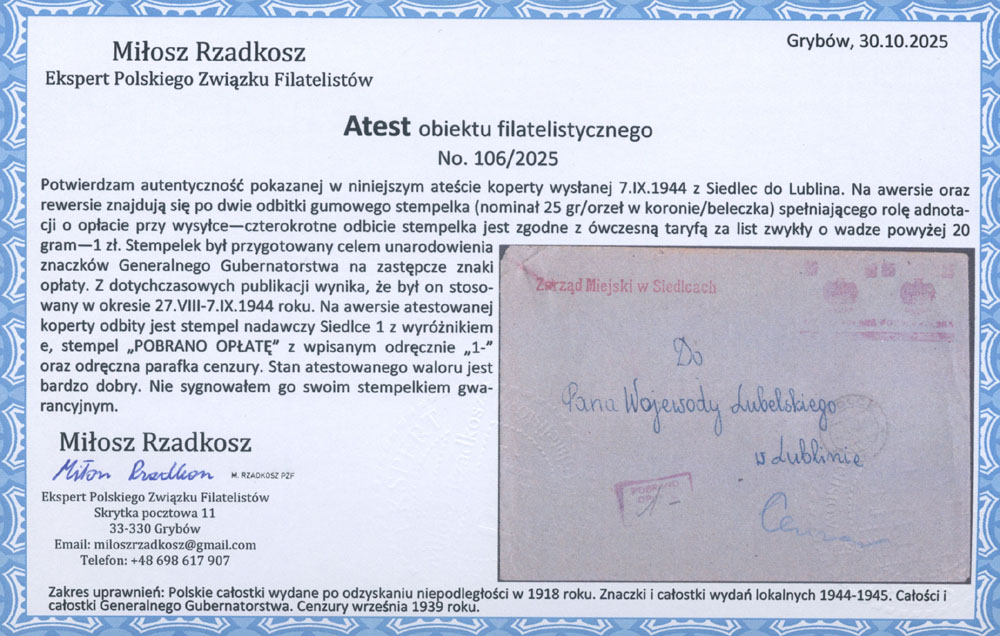 Miłosz Rzadkosz
Ekspert Polskiego Związku Filatelistów
Grybów, 30.10.2025
Atest obiektu filatelistycznego
No. 106/2025
Potwierdzam autentyczność pokazanej w niniejszym ateście koperty wysłanej 7.IX.1944 z Siedlec do Lublina. Na awersie oraz
rewersie znajdują się po dwie odbitki gumowego stempelka (nominał 25 gr/orzeł w koronie/beleczka) spełniającego rolę adnota-
cji o opłacie przy wysyłce—czterokrotne odbicie stempelka jest zgodne z ówczesną taryfą za list zwykły o wadze powyżej 20
gram—1 zł. Stempelek był przygotowany celem unarodowienia
znaczków Generalnego Gubernatorstwa na zastępcze znaki
opłaty. Z dotychczasowych publikacji wynika, że był on stoso-
wany w okresie 27.VIII-7.IX.1944 roku. Na awersie atestowanej
koperty odbity jest stempel nadawczy Siedlce 1 z wyróżnikiem
e, stempel „POBRANO OPŁATĘ” z wpisanym odręcznie „1-”
oraz odręczna parafka cenzury. Stan atestowanego waloru jest
bardzo dobry. Nie sygnowałem go swoim stempelkiem gwa-
rancyjnym.
Zarząd Miejski w Siedlcach
Do
Pana Wojewody Lubelskiego
w Lublinie
POBRANO
1-
Miłosz Rzadkosz
Miłosz Rzadkosz
M. RZADKOSZ PZF
Ekspert Polskiego Związku Filatelistów
Skrytka pocztowa 11
33-330 Grybów
Email: miloszrzadkosz@gmail.com
Telefon: +48 698 617 907
Zakres uprawnień: Polskie całostki wydane po odzyskaniu niepodległości w 1918 roku. Znaczki i całostki wydań lokalnych 1944-1945. Całości i
całostki Generalnego Gubernatorstwa. Cenzury września 1939 roku.